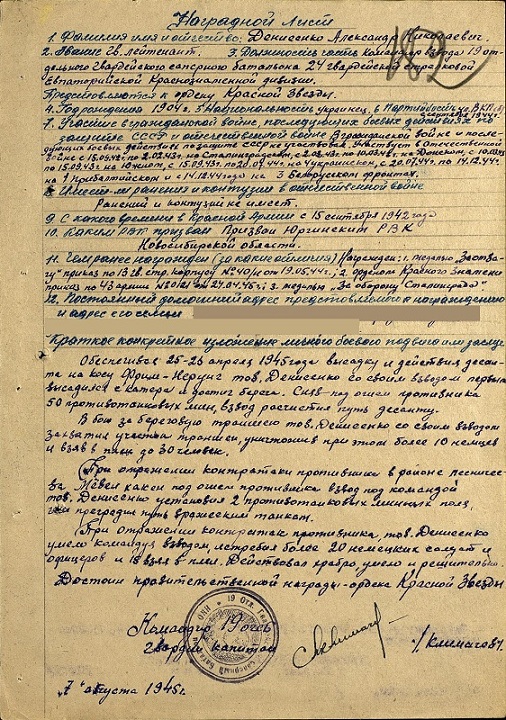 Наградной Лист
1. Фамилия имя и отчество: Денисенко Александр Николаевич.
2. Звание гв. лейтенант. 3. Должность часть командир взвода 19 от-
дельного гвардейского саперного батальона 24 гвардейской стрелковой
Евпаторийской Краснознаменной дивизии.
Представляется к ордену Красной Звезды.
4. Год рождения 1904 г. 5. Национальность украинец, 6. Партийность чл. ВКП(б)
1944 г.
7. Участие в гражданской войне, последующих боевых действиях по
защите СССР и отечественной войне В гражданской войне и после-
дующих боевых действиях по защите СССР не участвовал. Участвует в Отечественной
войне с 15.09.42 по 2.02.43, на Сталинградском, с
по 15.09.43 на Южном, с 15.09.43 на 4 Украинском, с по 14.12.44
на 1 Прибалтийском и с 14.12.44 года на 3 Белорусском фронтах.
8. Имеет ли ранения и контузии в отечественной войне
Ранений и контузий не имеет.
9. С какого времени в Красной Армии с 15 сентября 1942 года
10. Каким РВК призван Призван Юргинским РВК
Новосибирской области.
11. Чем ранее награжден (за какие отличия) Награжден: 1. медалью "За отва-
гу" приказ по 13 гв. стр. корпусу № 40/н от 19.05.44 г.; 2. орденом Красного Знамени
приказ по 43 армии от 24.04.45 г; 3. медалью "За оборону Сталинграда"
12. Постоянный домашний адрес представляемого к награждению
и адрес его семьи
Краткое конкретное изложение личного боевого подвига или заслуг
Обеспечивая 25-26 апреля 1945 года высадку и действия десан-
та на косу Фриш-Нерунг тов. Денисенко со своим взводом первым
высадился с катера и достиг берега. Сняв под огнем противника
50 противотанковых мин, взвод расчистил путь десанту.
В бою за береговую траншею тов. Денисенко со своим взводом
захватил участок траншеи, уничтожив при этом более 10 немцев
и взяв в плен до 30 человек.
При отражении контратаки противника в районе лесничест-
ва под огнем противника взвод под командой
тов. Денисенко установил 2 противотанковых минных поля,
чем преградил путь вражеским танкам.
При отражении контратак противника, тов. Денисенко
умело командуя взводом истребил более 20 немецких солдат и
офицеров и 18 взял в плен. Действовал храбро, умело и решительно.
Достоин правительственной награды - ордена Красной Звезды
Командир 19 огсб
гвардии капитан /Климачов/.
"7" августа 1945 г.